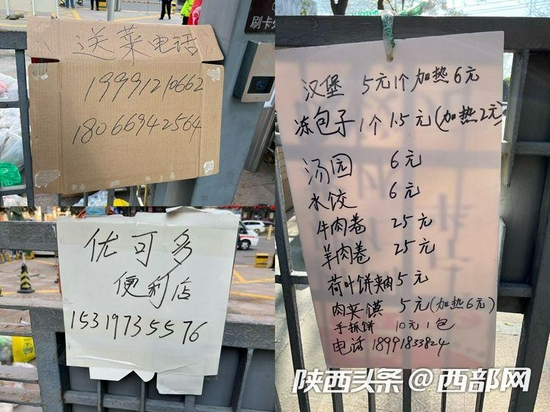 送菜电话
19991210662
18066942564
优可多
便利店
15319735576
刷卡
汉堡 5元1个 加热6元
冻包子 1个15元(加热2元)
汤园 6元
水饺 6元
牛肉卷 25元
羊肉卷 25元
荷叶饼 5元
肉夹馍 5元(加热6元)
手抓饼 10元1包
电话18991833824
陕西头条 @西部网